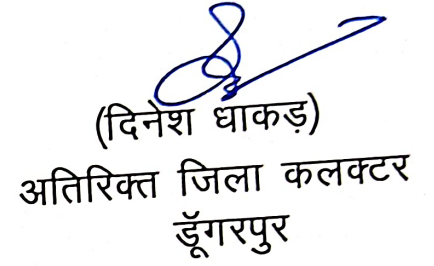 (दिनेश धाकड़)
अतिरिक्त जिला कलक्टर
डूॅगरपुर